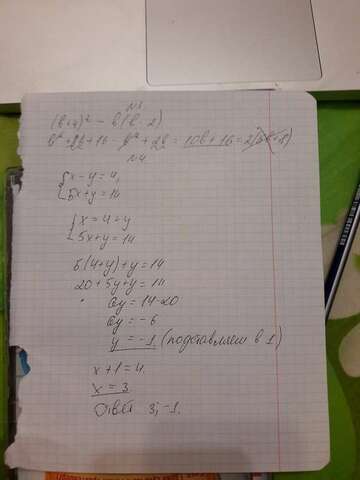 N3
(b+4)² - b(b-2)
b²+8b+16 - b²+2b = 10b+16 = 2(5b+8)
N4
{x-y=4,
5x+y=14
{x=4+y
5x+y=14
5(4+y)+y=14
20+5y+y=14
6y=14-20
6y=-6
y=-1 (подставляем в 1)
x+1=4
x=3
Ответ 3; -1.